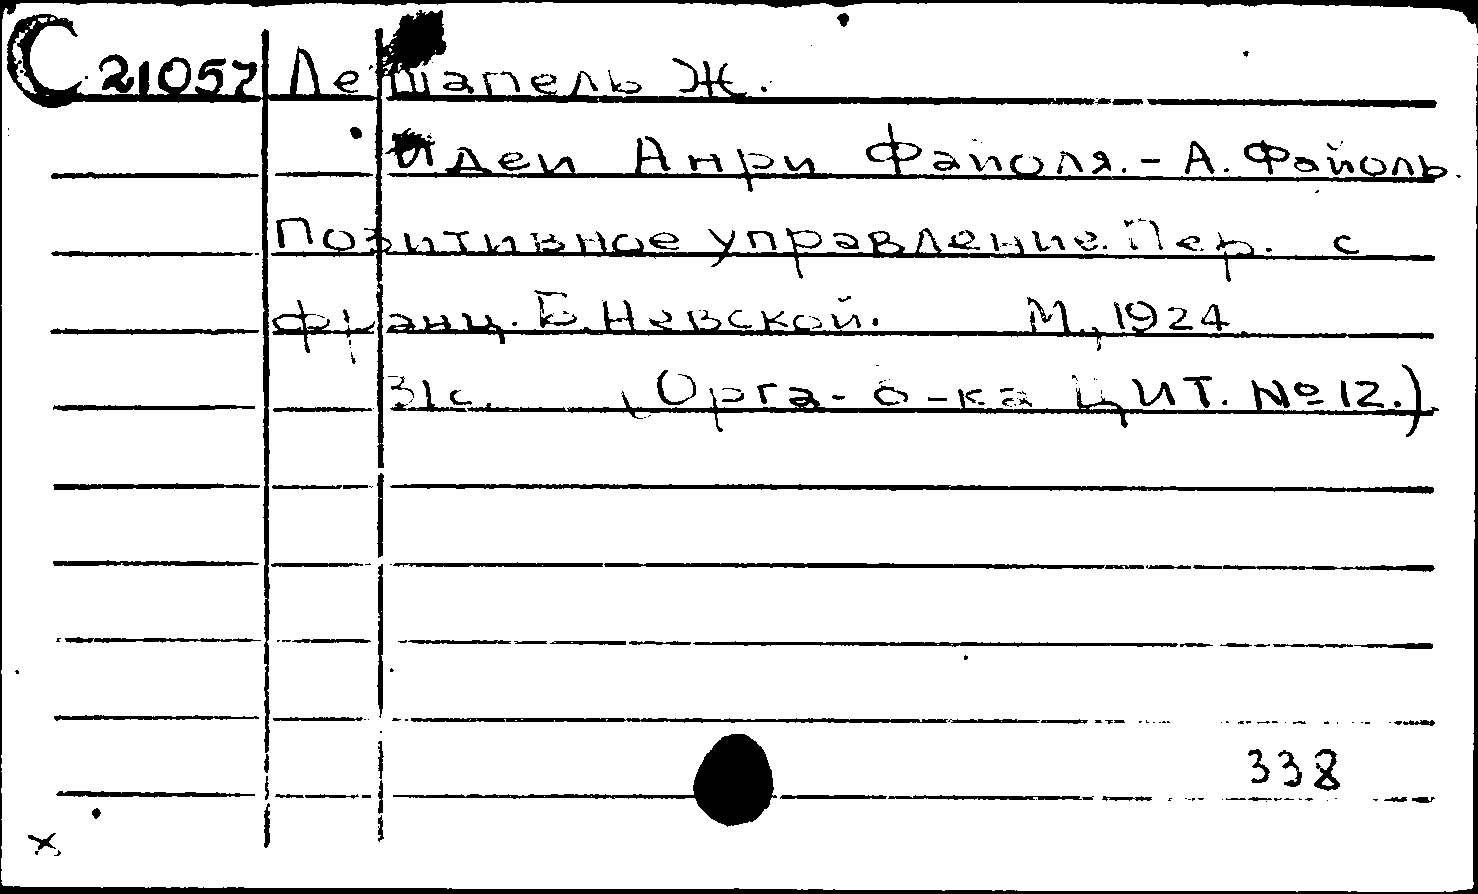 С 21057 Ле Шапель Ж.
Идеи Анри Файоля. - А. Файоль.
Позитивное управление. Пер. с
франц. Б. Невской. М., 1924.
31с. (Орга- б-ка ЦИТ. № 12.)
338
х